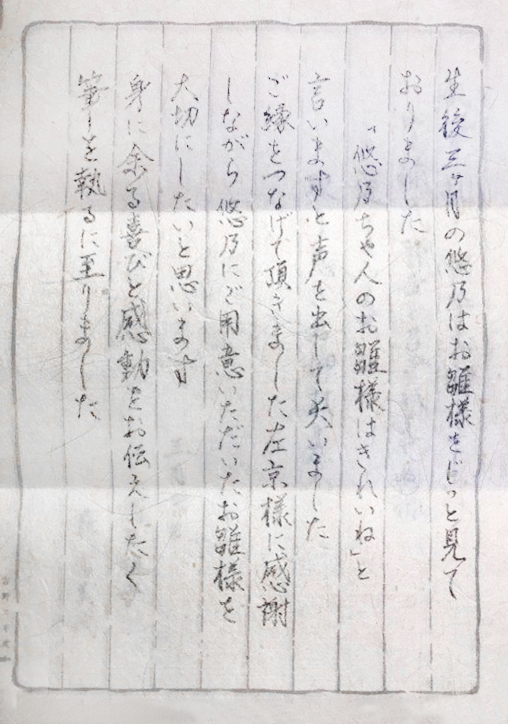 生後三ヶ月の悠乃はお雛様をじっと見て
おりました
「悠乃ちゃんのお雛様はきれいね」と
言いますと声を出して笑いました
ご縁をつなげて頂きました左京様に感謝
しながら悠乃にご用意いただいたお雛様を
大切にしたいと思います
身に余る喜びと感動をお伝えしたく
筆を執るに至りました